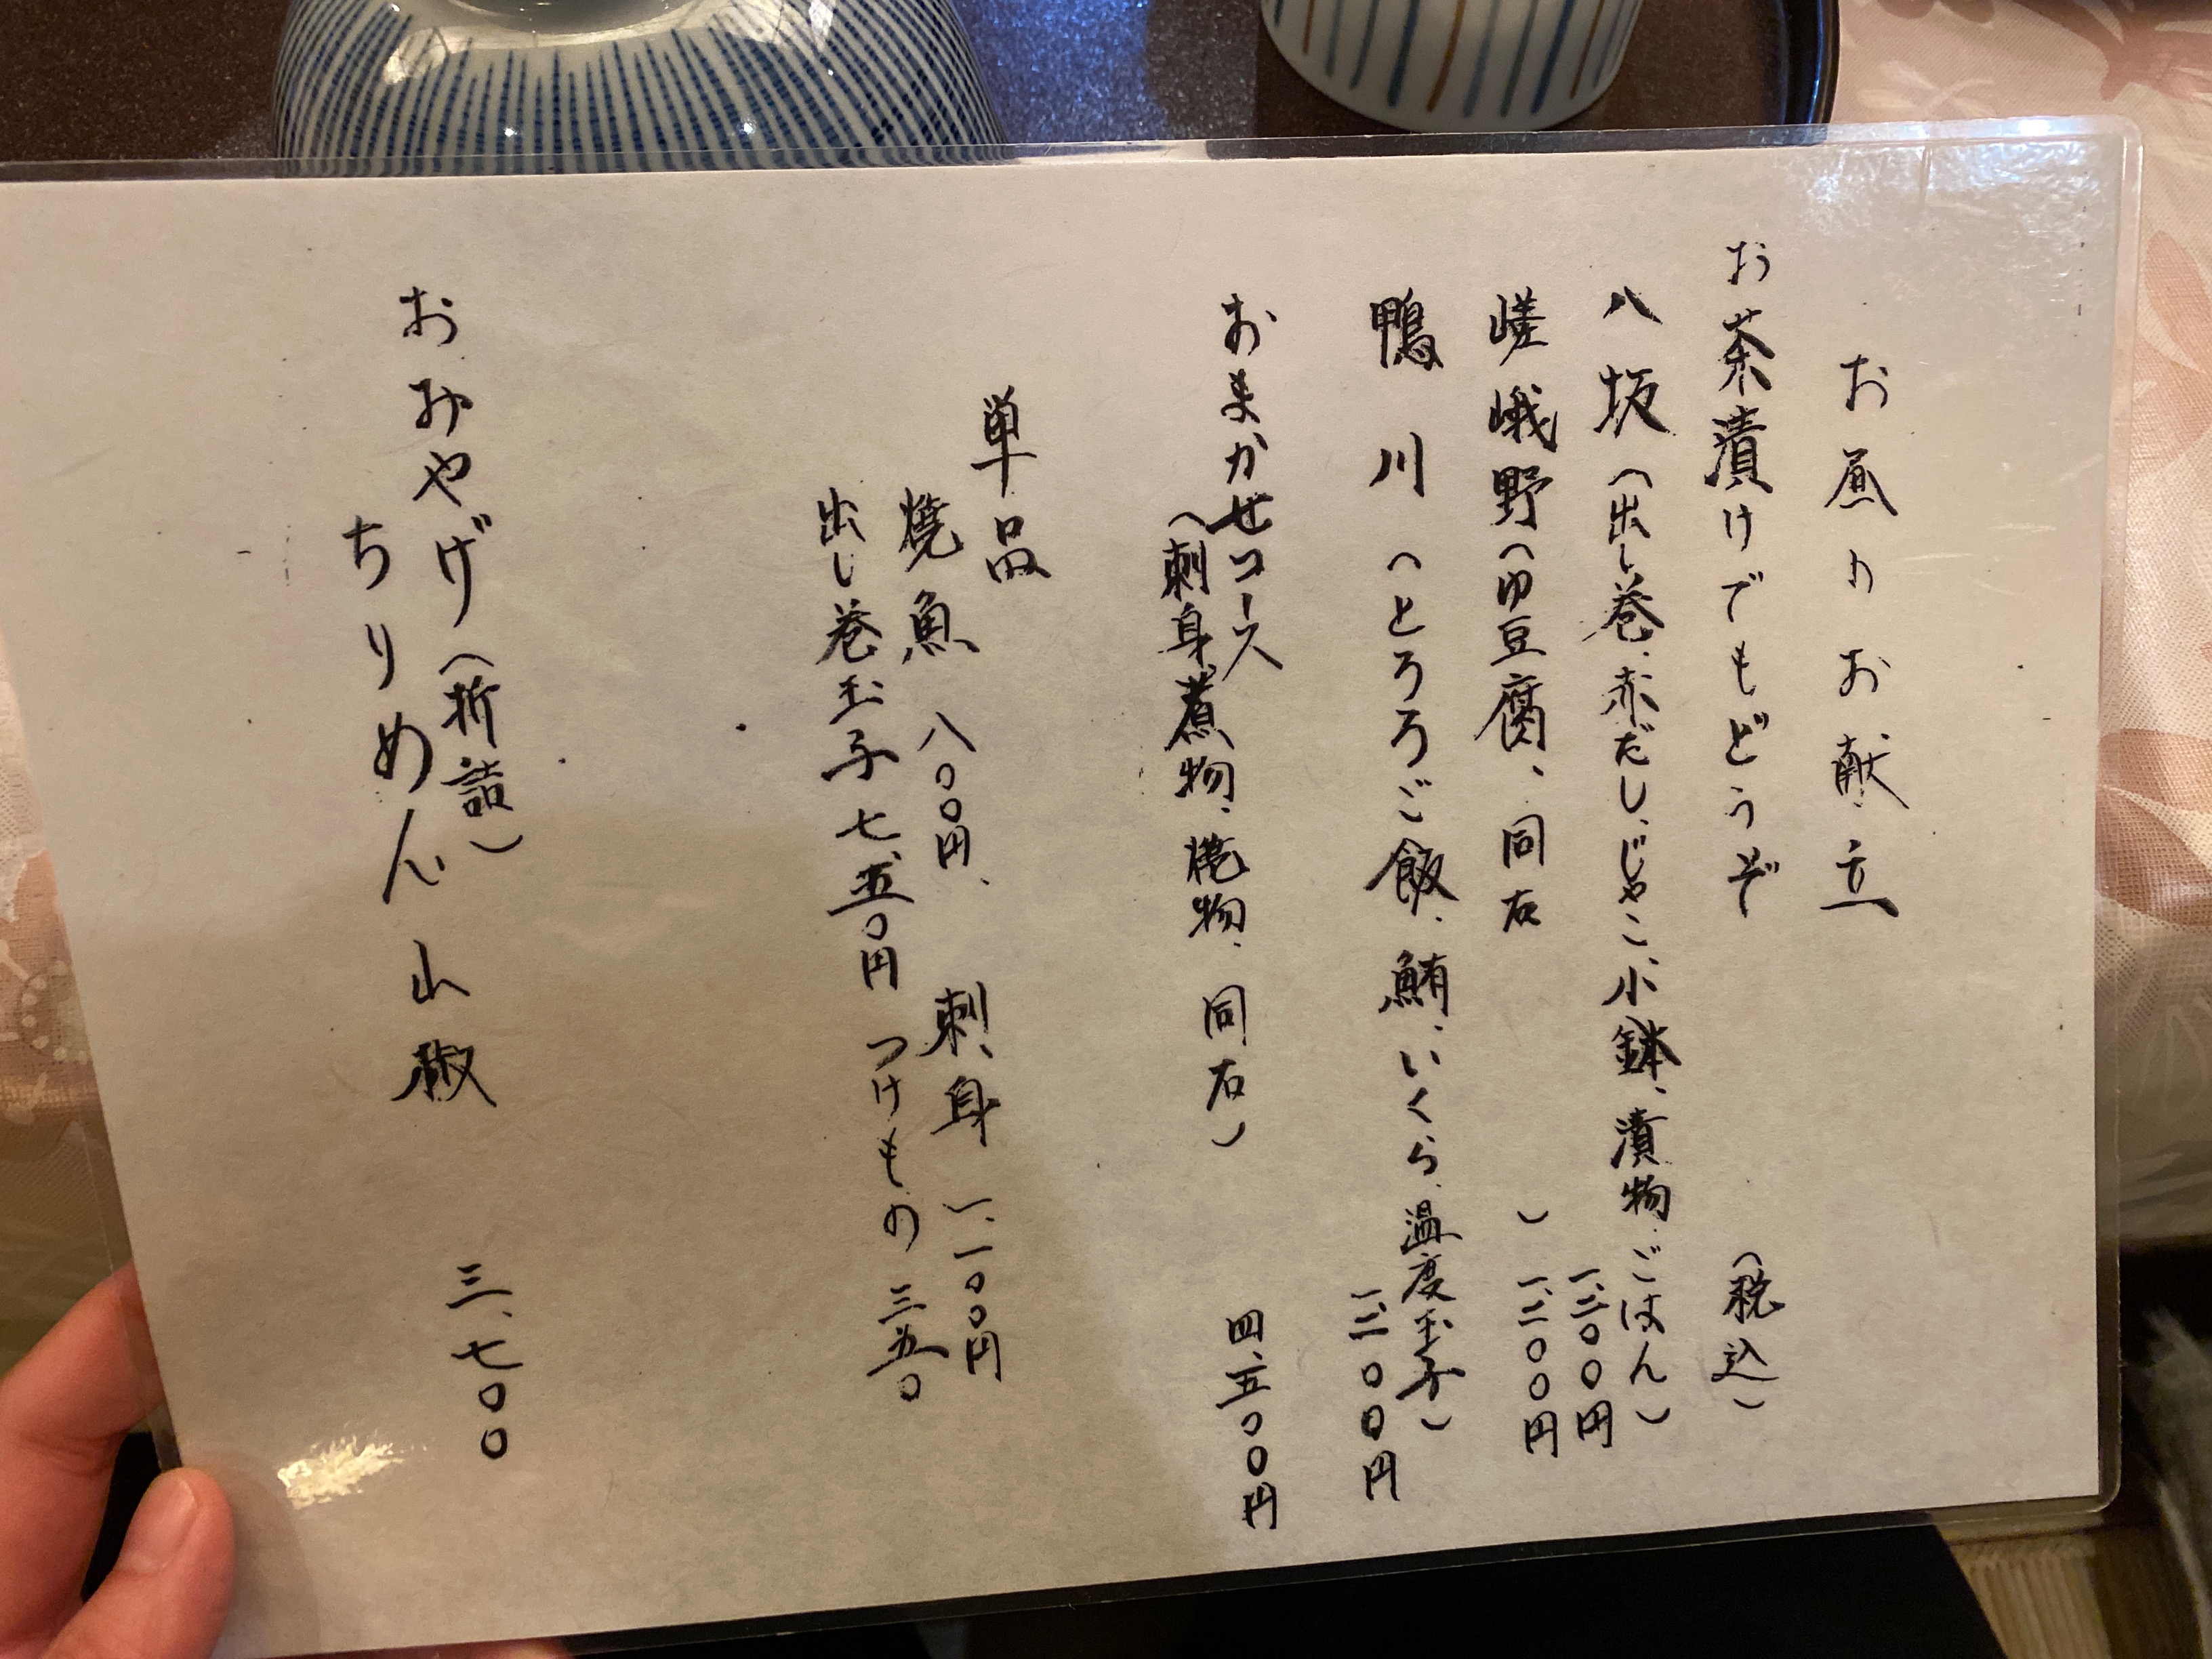 お昼のお献立
お茶漬けでもどうぞ (税込)
八坂(出し巻、赤だし、じゃこ、小鉢、漬物、ごはん)
一、二〇〇円
嵯峨野(ゆ豆腐、同右 ) 一、二〇〇円
鴨川 (とろろご飯、鮪、いくら、温度玉子)
一、二〇〇円
おまかせコース
(刺身、煮物、焼物、同右) 四、五〇〇円
単品
焼魚 八〇〇円、 刺身 一、一〇〇円
出し巻玉子 七五〇円 つけもの 三五〇
おみやげ(折詰)
ちりめん山椒 三、七〇〇